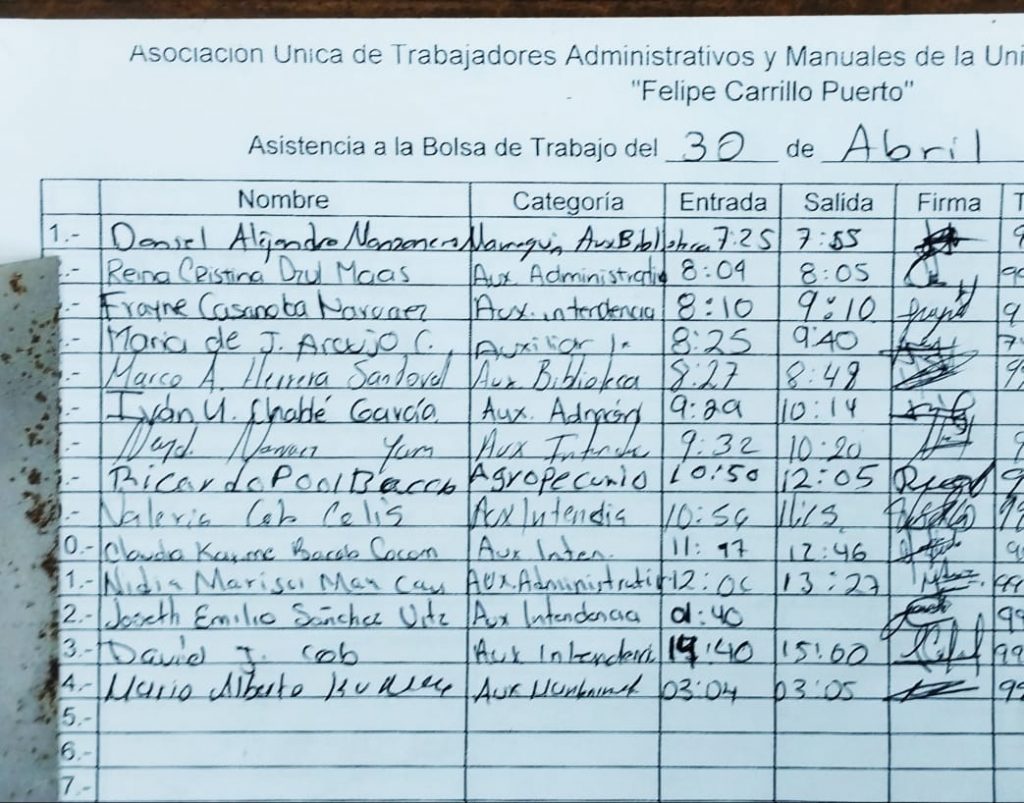 Asociación Única de Trabajadores Administrativos y Manuales de la Uni
"Felipe Carrillo Puerto"
Asistencia a la Bolsa de Trabajo del 30 de Abril
Nombre Categoría Entrada Salida Firma T
1.- Daniel Alejandro Manzanero Aux Biblioteca 7:25 7:55 9
.- Reina Cristina Dzul Maas Aux. Administrativ 8:09 8:05 99
.- Frayne Casanoba Narvaez Aux. intendencia 8:10 9:10 9
.- María de J. Araujo C. Auxiliar 8:25 9:40
.- Marco A. Herrera Sandoval Aux. Biblioteca 8:27 8:48 99
.- Iván U. Chablé García Aux. Admón 9:29 10:14
.- Yam Aux 9:32 10:20 9
.- Ricardo Pool Bacab Agropecuario 10:50 12:05 9
.- Valeria Cob Celis Aux Intendia 10:54 99
0.- Claudia Karime Bacab Cocom Aux. Inten. 12:46
1.- Nidia Marisol May Aux. Administrativ 13:27 99
2.- Joseth Emilio Sánchez Uitz Aux Intendencia :40 99
3.- David J. Cob Aux Intendenci :40 15:00 99
4.- Mario Alberto Aux 03:04 03:05 99
5.-
6.-
7.-